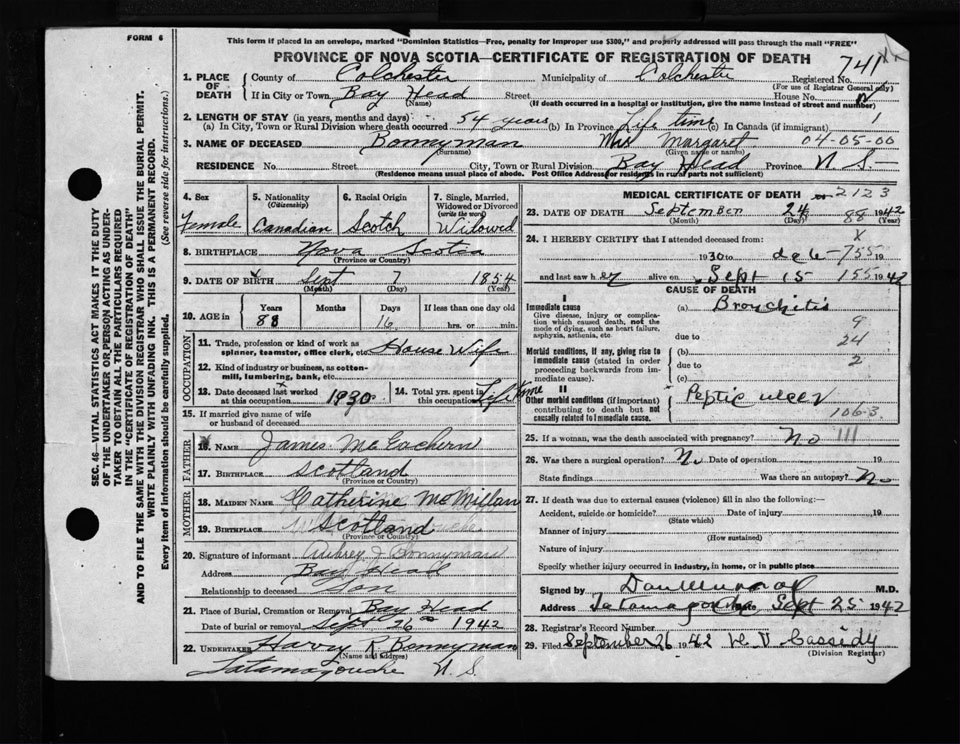 FORM 6
This form if placed in an envelope, marked "Dominion Statistics—Free, penalty for improper use $300," and properly addressed will pass through the mail "FREE"
PROVINCE OF NOVA SCOTIA—CERTIFICATE OF REGISTRATION OF DEATH
741
1. PLACE OF DEATH
County of Colchester Municipality of Colchester Registered No.
(For use of Registrar General only)
If in City or Town Bay Head Street House No.
(Name) (If death occurred in a hospital or institution, give the name instead of street and number)
2. LENGTH OF STAY (in years, months and days)
(a) In City, Town or Rural Division where death occurred 54 years (b) In Province Life time (c) In Canada (if immigrant) 1
3. NAME OF DECEASED Bonnyman Mrs Margaret 04-05-00
(Surname) (Given name or names)
RESIDENCE No. Street City, Town or Rural Division Bay Head Province N. S.
(Residence means usual place of abode. Post Office Address for residents in rural parts not sufficient)
4. Sex Female
5. Nationality (Citizenship) Canadian
6. Racial Origin Scotch
7. Single, Married, Widowed or Divorced (write the word) Widowed
8. BIRTHPLACE Nova Scotia
(Province or Country)
9. DATE OF BIRTH Sept 7 1854
(Month) (Day) (Year)
10. AGE in Years 88 Months Days 16 If less than one day old hrs. or min.
OCCUPATION
11. Trade, profession or kind of work as spinner, teamster, office clerk, etc. House Wife
12. Kind of industry or business, as cotton-mill, lumbering, bank, etc.
13. Date deceased last worked at this occupation 1930
14. Total yrs. spent in this occupation Life time
15. If married give name of wife or husband of deceased
FATHER
16. NAME James McEachern
17. BIRTHPLACE Scotland
(Province or Country)
MOTHER
18. MAIDEN NAME Catherine McMillan
19. BIRTHPLACE Scotland
(Province or Country)
20. Signature of informant Aubrey J Bonnyman
Address Bay Head
Relationship to deceased Son
21. Place of Burial, Cremation or Removal Bay Head
Date of burial or removal Sept 26 1942
22. UNDERTAKER Harvy R Bonnyman
(Name and address)
Tatamagouche N. S.
MEDICAL CERTIFICATE OF DEATH 2123
23. DATE OF DEATH September 24 88 1942
(Month) (Day) (Year)
24. I HEREBY CERTIFY that I attended deceased from: X
1930 to date 755 19
and last saw her alive on Sept 15 155 1942
CAUSE OF DEATH
I
Immediate cause
Give disease, injury or complication which caused death, not the mode of dying, such as heart failure, asphyxia, asthenia, etc.
(a) Bronchitis
9
due to 24
Morbid conditions, if any, giving rise to immediate cause (stated in order proceeding backwards from immediate cause).
(b) 2
due to
(c)
II
Other morbid conditions (if important) contributing to death but not causally related to immediate cause.
Peptic ulcer
106-3
25. If a woman, was the death associated with pregnancy? No 111
26. Was there a surgical operation? No Date of operation 19
State findings Was there an autopsy? No
27. If death was due to external causes (violence) fill in also the following:—
Accident, suicide or homicide? Date of injury 19
(State which)
Manner of injury
(How sustained)
Nature of injury
Specify whether injury occurred in industry, in home, or in public place
Signed by M.D.
Address Tatamagouche, Sept 25 1942
28. Registrar's Record Number
29. Filed September 26 1942 Cassidy
(Division Registrar)
SEC. 46—VITAL STATISTICS ACT MAKES IT THE DUTY
OF THE UNDERTAKER OR PERSON ACTING AS UNDER-
TAKER TO OBTAIN ALL THE PARTICULARS REQUIRED
IN THE "CERTIFICATE OF REGISTRATION OF DEATH"
AND TO FILE THE SAME WITH THE DIVISION REGISTRAR WHO SHALL ISSUE THE BURIAL PERMIT.
WRITE PLAINLY WITH UNFADING INK. THIS IS A PERMANENT RECORD.
Every item of information should be carefully supplied. (See reverse side for instructions.)